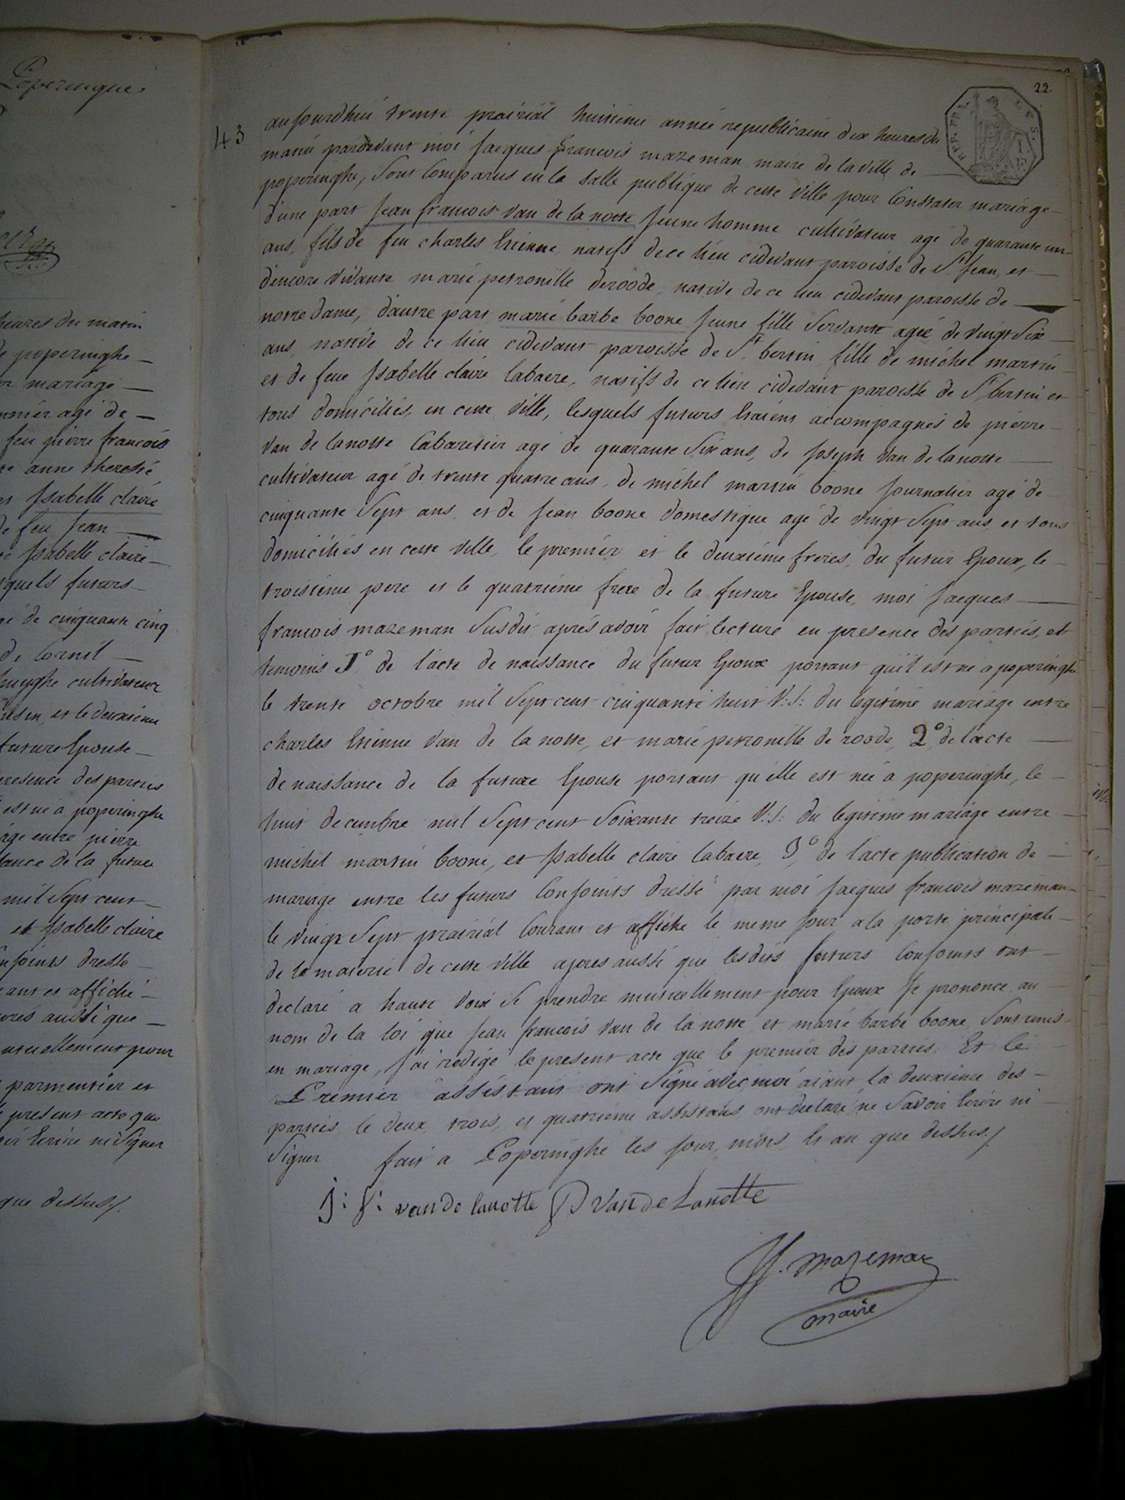 Poperingue
heures du matin
de poperinghe
mariage
agé de
feu pierre francois
anne therese
Isabelle claire
de feu Jean
Isabelle claire
futurs
de cinquante cinq
de Cornil
cultivateur
et le deuxieme
future Epouse
presence des parties
est né a poperinghe
entre pierre
de la future
mil Sept cent
et Isabelle claire
dressé
et affiché
aussi que
mutuellement pour
parmentier et
present acte que
Ecrire ni Signer
que dessus
22
43
aujourdhui trente prairial huitieme année republicaine dix heures du
matin pardevant moi Jacques francois mazeman maire de la ville de
poperinghe, Sont Comparus en la Salle publique de cette ville pour Constater mariage
d'une part Jean francois van de lanotte Jeune homme cultivateur agé de quarante un
ans, fils de feu charles Etienne natifs de ce lieu cidevant paroisse de St Jean, et
d'encore vivante marié petronille deroode, native de ce lieu cidevant paroisse de
notre dame, d'autre part marie barbe boone Jeune fille Servante agée de vingt Six
ans, native de ce lieu cidevant paroisse de St bertin fille de michel martin
et de feue Isabelle claire labaere, natifs de ce lieu cidevant paroisse de St bertin et
tous domiciliés en cette ville, lesquels futurs Etaient accompagnés de pierre
van de lanotte Cabaretier agé de quarante Six ans, de Joseph van de lanotte
cultivateur agé de trente quatre ans, de michel martin boone Journalier agé de
cinquante Sept ans, et de Jean boone domestique agé de vingt Sept ans et tous
domiciliés en cette ville, le premier et le deuxieme freres du futur Epoux, le
troisieme pere et le quatrieme frere de la future Epouse, moi Jacques
francois mazeman Susdit aprés avoir fait lecture en presence des parties, et
temoins 1° de l'acte de naissance du futur Epoux portant qu'il est né a poperinghe
le trente octobre mil Sept cent cinquante huit V: S: du legitime mariage entre
charles Etienne van de la notte, et marie petronille de roode, 2° de l'acte
de naissance de la future Epouse portant qu'elle est née a poperinghe, le
huit decembre mil Sept cent Soixante treize V: S: du legitime mariage entre
michel martin boone, et Isabelle claire labaere, 3° de l'acte publication de
mariage entre les futurs Conjoints dressé par moi Jacques francois mazeman
le vingt Sept prairial Courant et affiché le meme Jour a la porte principale
de la mairie de cette ville apres aussi que lesdits futurs Conjoints ont
declaré a haute voix Se prendre mutuellement pour Epoux Je prononce au
nom de la loi que Jean francois van de la notte et marie barbe boone Sont unis
en mariage, J'ai redigé le present acte que le premier des parties, Et le
Premier assistant ont Signé avec moi aiant la deuxieme des
parties, le deux, trois, et quatrieme assistans ont declaré ne Savoir Ecrire ni
Signer fait a Poperinghe les Jour, mois Et an que dessus
J: f: van de lanotte P van de Lanotte
JJ. mazeman
maire